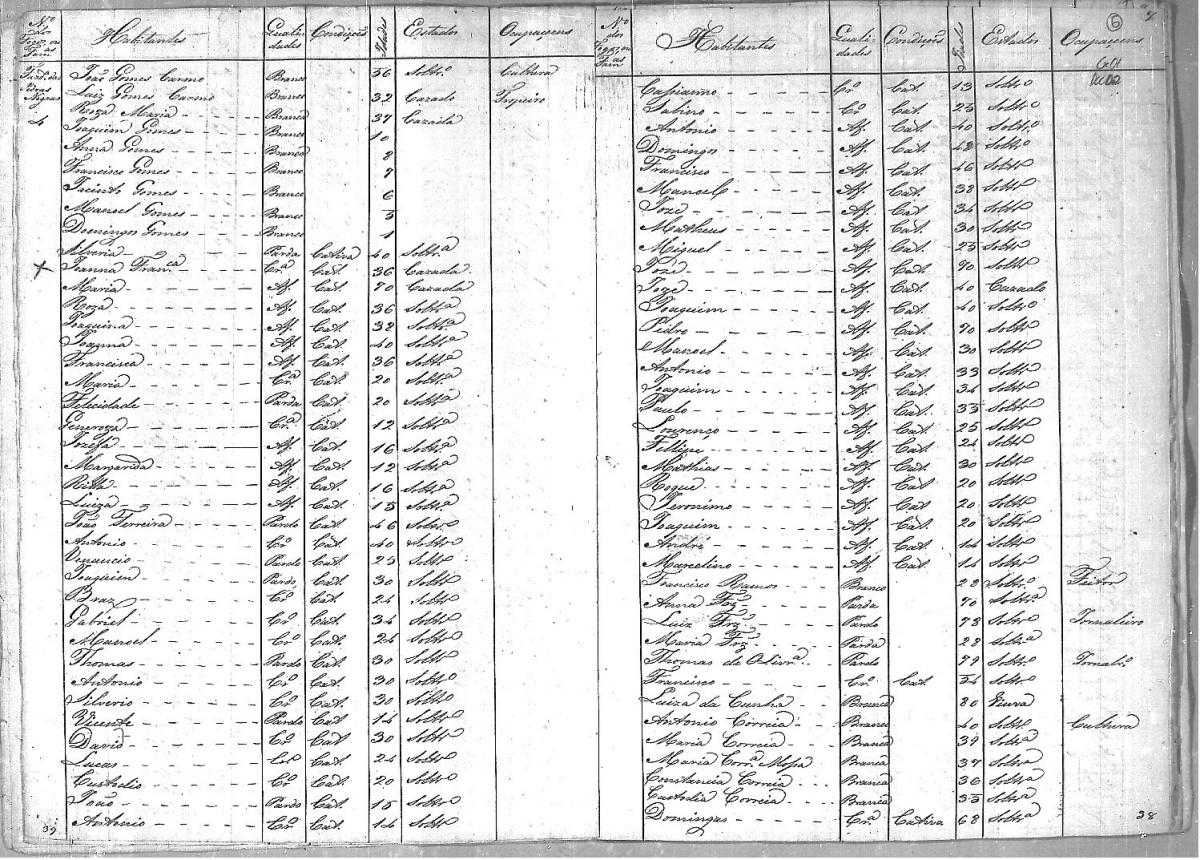 Nº dos Fogos ou Fam.as Habitantes Quali- dades Condições Idades Estados Ocupaçoens
João Gomes Carmo Branco 56 Soltrº Cultura
Luiz Gomes Carmo Branco 32 Cazado
Roza Maria Branca 37 Cazada
4 Joaquim Gomes Branco 10
Anna Gomes Branca 8
Francisco Gomes Branco 7
Jacinto Gomes Branco 6
Manoel Gomes Branco 3
Domingos Gomes Branco 1
Silveria Parda Cativa 40 Soltrª
Joanna Fran.ca Crª Cat 36 Cazada
Maria Af. Cat. 70 Cazada
Roza Af. Cat. 36 Soltrª
Joaquina Af. Cat. 32 Soltrª
Joanna Af. Cat. 40 Soltrª
Francisca Af. Cat. 36 Soltrª
Maria Crª Cat. 20 Soltrª
Felicidade Parda Cat. 20 Soltrª
Generoza Crª Cat. 12 Soltrª
Jozefa Af. Cat. 16 Soltrª
Margarida Af. Cat. 12 Soltrª
Ritta Af. Cat. 16 Soltrª
Luiza Af. Cat. 13 Soltrª
João Ferreira Pardo Cat. 46 Soltrº
Antonio Crº Cat. 40 Soltrº
Venancio Pardo Cat. 25 Soltrº
Joaquim Pardo Cat. 30 Soltrº
Braz Crº Cat. 24 Soltrº
Gabriel Crº Cat. 34 Soltrº
Manoel Crº Cat. 24 Soltrº
Thomas Pardo Cat. 30 Soltrº
Antonio Crº Cat. 30 Soltrº
Silverio Crº Cat. 30 Soltrº
Vicente Pardo Cat 14 Soltrº
David Crº Cat 30 Soltrº
Lucas Crº Cat 24 Soltrº
Custodio Crº Cat. 20 Soltrº
João Pardo Cat. 15 Soltrº
Antonio Crº Cat. 14 Soltrº
6
Nº dos Fogos ou Fam.as Habitantes Quali- dades Condições Idades Estados Ocupaçoens
Crº Cat. 13 Soltrº
Sabino Crº Cat. 25 Soltrº
Antonio Af. Cat. 40 Soltrº
Domingos Af. Cat. 48 Soltrº
Francisco Af. Cat. 46 Soltrº
Manoel Af. Cat. 38 Soltrº
Joze Af. Cat 34 Soltrº
Matheus Af. Cat. 30 Soltrº
Miguel Af. Cat. 25 Soltrº
Joze Af. Cat. 90 Soltrº
Joze Af. Cat. 40 Cazado
Joaquim Af. Cat. 40 Soltrº
Pedro Af. Cat. 90 Soltrº
Manoel Af. Cat. 30 Soltrº
Antonio Af. Cat. 33 Soltrº
Joaquim Af. Cat. 34 Soltrº
Paulo Af. Cat. 33 Soltrº
Lourenço Af. Cat. 25 Soltrº
Fellipe Af. Cat. 24 Soltrº
Mathias Af. Cat. 30 Soltrº
Roque Af. Cat 20 Soltrº
Jeronimo Af. Cat 20 Soltrº
Joaquim Af. Cat. 20 Soltrº
André Af. Cat 14 Soltrº
Marcelino Af. Cat 14 Soltrº
Francisco Ramos Branco 28 Soltrº Feitor
Anna Frz. Parda 70 Soltrª
Luiz Frz. Pardo 78 Soltrº Jornaleiro
Maria Frz. Parda 28 Soltrª
Thomas de Olivrª Pardo 79 Soltrº Jornalrº
Francisco Crº Cat. 54 Soltrº
Luiza da Cunha Branca 80 Viuva
Antonio Correia Branco 40 Soltrº Cultura
Maria Correia Branca 39 Soltrª
Maria Corrª Mossa Branca 37 Soltrª
Constancia Correia Branca 36 Soltrª
Custodia Correia Branca 33 Soltrª
Domingas Crª Cativa 68 Soltrª
39
38